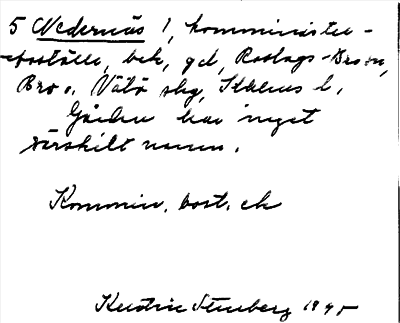 5 Nedernäs 1, komminister-
boställe, beb, gd, Roslags-Bro sn,
Bro o. Vätö skg, Sthlms l.
Gården har inget
särskilt namn.
Kommin. bost. ek
Kerstin Stenberg 1945